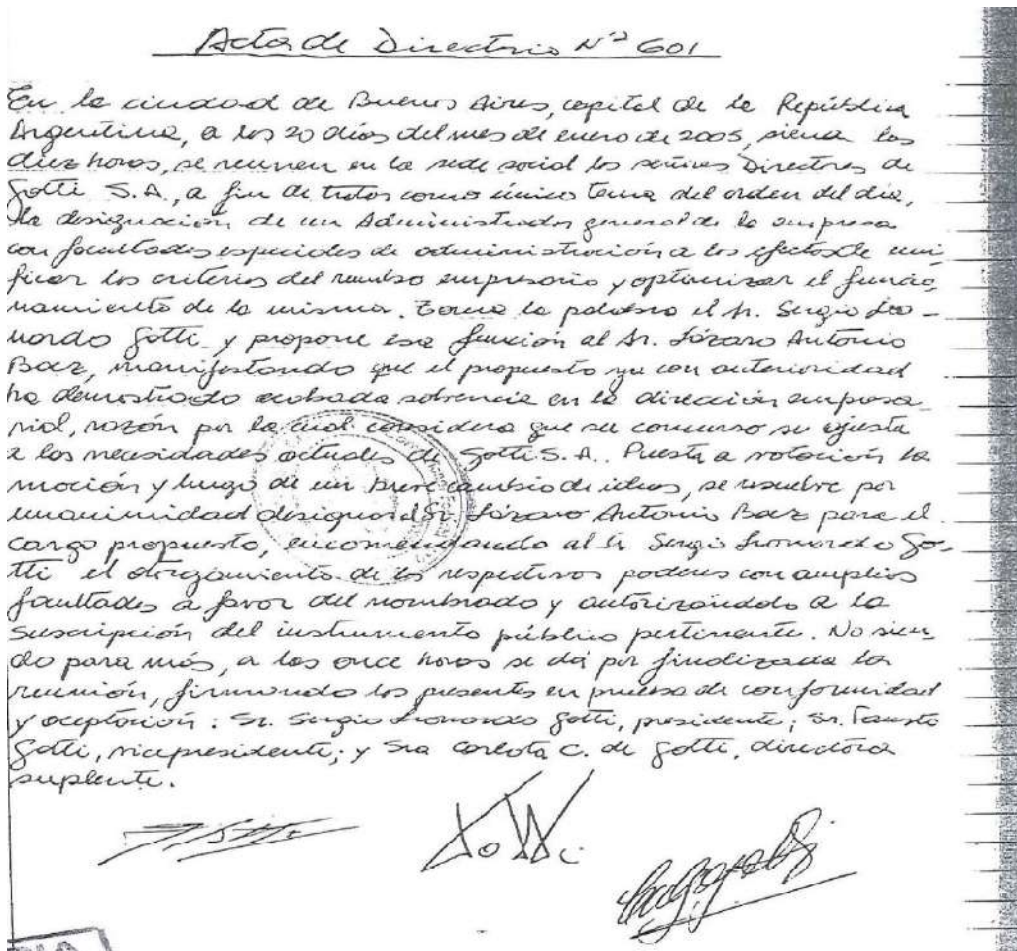 Acta de Directorio Nº 601
En la ciudad de Buenos Aires, capital de la República
Argentina, a los 20 días del mes de enero de 2005, siendo las
diez horas, se reunen en la sede social los señores Directores de
Gotti S.A., a fin de tratar como único tema del orden del día,
la designación de un Administrador general de la empresa
con facultades especiales de administración a los efectos de uni
ficar los criterios del rumbo empresario y optimizar el funcio
namiento de la misma. Toma la palabra el Sr. Sergio Leo-
nardo Gotti y propone esa función al Sr. Lázaro Antonio
Baez, manifestando que el propuesto ya con anterioridad
ha demostrado acabada solvencia en la dirección empresa
rial, razón por la cual considera que su concurso se ajusta
a las necesidades actuales de Gotti S.A. Puesta a votación la
moción y luego de un breve cambio de ideas, se resuelve por
unanimidad designar al Sr Lázaro Antonio Baez para el
cargo propuesto, encomendando al Sr Sergio Leonardo Go-
tti el otorgamiento de los respectivos poderes con amplias
facultades a favor del nombrado y autorizándolo a la
suscripción del instrumento público pertinente. No sien
do para más, a las once horas se da por finalizada la
reunión, firmando los presentes en prueba de conformidad
y aceptación: Sr. Sergio Leonardo Gotti, presidente; Sr. Fausto
Gotti, vicepresidente; y Sra Carlota C. de Gotti, directora
suplente.